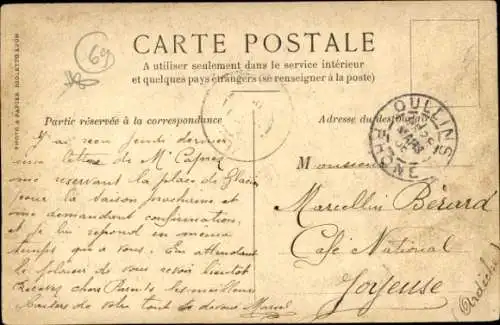 69
CARTE POSTALE
A utiliser seulement dans le service intérieur
et quelques pays étrangers (se renseigner à la poste)
PHOTO & PAPIER RIOLETTO LYON
Partie réservée à la correspondance
Adresse du destinataire
OULLINS
RHONE
J'ai reçu jeudi dernier
une lettre de Mr
me réservant la place de Glacier
pour la saison prochaine et
me demandant confirmation,
et je lui répond en même
temps qu'a vous. En attendant
le plaisir de vous revoir bientôt
Recevez chers Parents les meilleurs
baisers de votre tout dévoué Marcel
Monsieur
Marcellin Bérard
Café National
Joyeuse
(Ardèche)